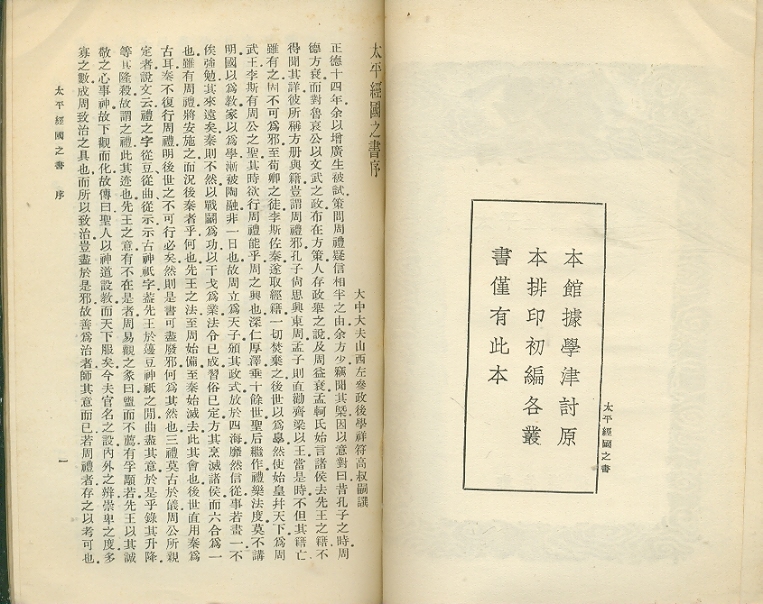 太平經國之書
本館據學津討原
本排印初編各叢
書僅有此本
太平經國之書序
大中大夫山西左參政後學祥符高叔嗣譔
正德十四年余以增廣生被試策問周禮疑信相半之由余方少竊聞其槩因以意對曰昔孔子之時周
德方衰而對魯哀公以文武之政布在方策人存政舉之說及周益衰孟軻氏始言諸侯去先王之籍不
得聞其詳彼所稱方册與籍豈謂周禮邪孔子尙思興東周孟子則直勸齊梁以王當是時不但其籍亡
雖有之因不可爲邪至荀卿之徒李斯佐秦遂取經籍一切焚棄之後世以爲蠱然使始皇幷天下爲周
武王李斯有周公之聖其時欲行周禮能乎周之興也深仁厚澤垂十餘世聖后繼作禮樂法度莫不講
明國以爲教家以爲學漸被陶融非一日也故周立爲天子頒其政式放於四海靡然信從事若畫一不
俟強勉其來遠矣秦則不然以戰鬭爲功以干戈爲業法令已成習俗已定方其烹滅諸侯而六合爲一
也雖有周禮將安施之而況後秦者乎何也先王之法至周始備至秦始滅去此其會也後世直用秦爲
古耳秦不復行周禮明後世之不可行必矣然則是書可盡廢邪何爲其然也三禮莫古於儀周公所親
定者說文云禮之字從豆從曲從示示古神祇字蓋先王於籩豆神祇之閒曲盡其意於是乎錄其升降
等其隆殺故謂之禮此其迹也先王之意有不在是者周易觀之彖曰盥而不薦有孚顒若先王以其誠
敬之心事神故下觀而化故傳曰聖人以神道設教而天下服矣今夫官名之設內外之辨崇卑之度多
寡之數成周致治之具也而所以致治豈盡於是邪故善爲治者師其意而已若周禮者存之以考可也
太平經國之書 序
一